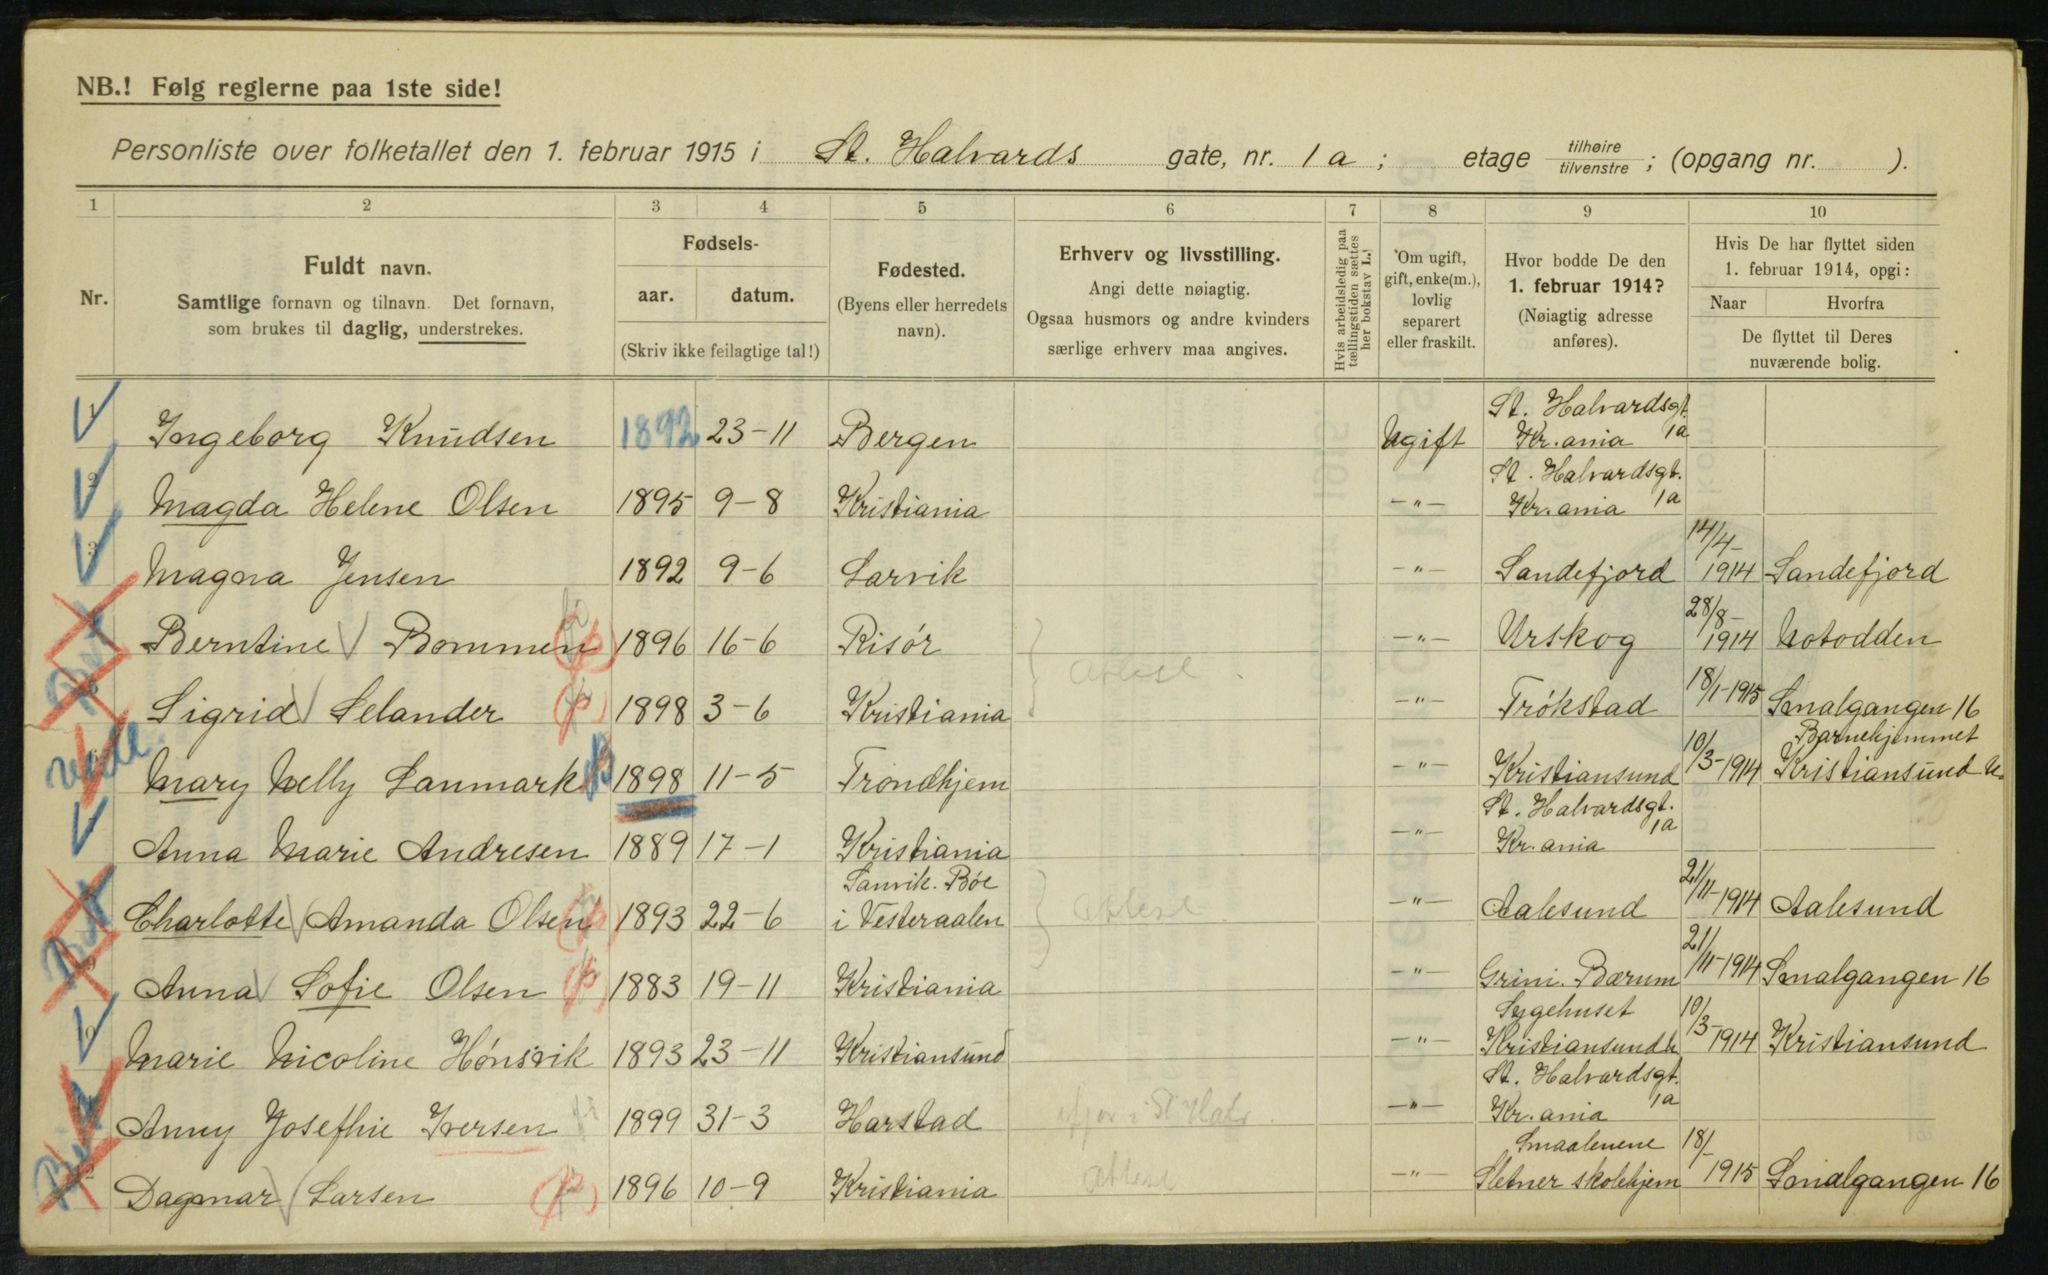 NB.! Følg reglerne paa 1ste side!
Personliste over folketallet den 1. februar 1915 i St. Halvards gate, nr. 1a; etage tilhøire/tilvenstre; (opgang nr. ).
1 2 3 4 5 6 7 8 9 10
Nr.
Fuldt navn.
Samtlige fornavn og tilnavn. Det fornavn,
som brukes til daglig, understrekes.
Fødsels-
aar. datum.
(Skriv ikke feilagtige tal!)
Fødested.
(Byens eller herredets
navn).
Erhverv og livsstilling.
Angi dette nøiagtig.
Ogsaa husmors og andre kvinders
særlige erhverv maa angives.
Hvis arbeidsledig paa
tællingstiden sættes
her bokstav L.!
Om ugift,
gift, enke(m.),
lovlig
separert
eller fraskilt.
Hvor bodde De den
1. februar 1914?
(Nøiagtig adresse
anføres).
Hvis De har flyttet siden
1. februar 1914, opgi:
Naar Hvorfra
De flyttet til Deres
nuværende bolig.
St. Halvardsgt.
1 Ingeborg Knudsen 1892 23-11 Bergen Ugift Kr.ania 1a
St. Halvardsgt.
2 Magda Helene Olsen 1895 9-8 Kristiania -"- Kr.ania 1a
3 Magna Jensen 1892 9-6 Larvik -"- Sandefjord 14/4-1914 Sandefjord
Berntine Bommen 1896 16-6 Risór -"- Urskog 28/8-1914 Notodden
Sigrid Selander 1898 3-6 Kristiania -"- Trókstad 18/1-1915 Smalgangen 16
Barnehjemmet
Mary Nelly Sanmark 1898 11-5 Trondhjem -"- Kristiansund 10/3-1914 Kristiansund N.
St. Halvardsgt.
Anna Marie Andresen 1889 17-1 Kristiania -"- Kr.ania 1a
Sanvik. Bóe
Charlotte Amanda Olsen 1893 22-6 i Vesteraalen -"- Aalesund 21/11-1914 Aalesund
9 Anna Sofie Olsen 1883 19-11 Kristiania -"- Grini. Bærum 21/11-1914 Smalgangen 16
Sygehuset
Marie Nicoline Hónsvik 1893 23-11 Kristiansund -"- Kristiansund N 10/3-1914 Kristiansund
St. Halvardsgt.
Anny Josefhie Iversen 1899 31-3 Harstad -"- Kr.ania 1a
Smaalenene
Dagmar Larsen 1896 10-9 Kristiania -"- Sletner skolehjem 18/1-1915 Smalgangen 16